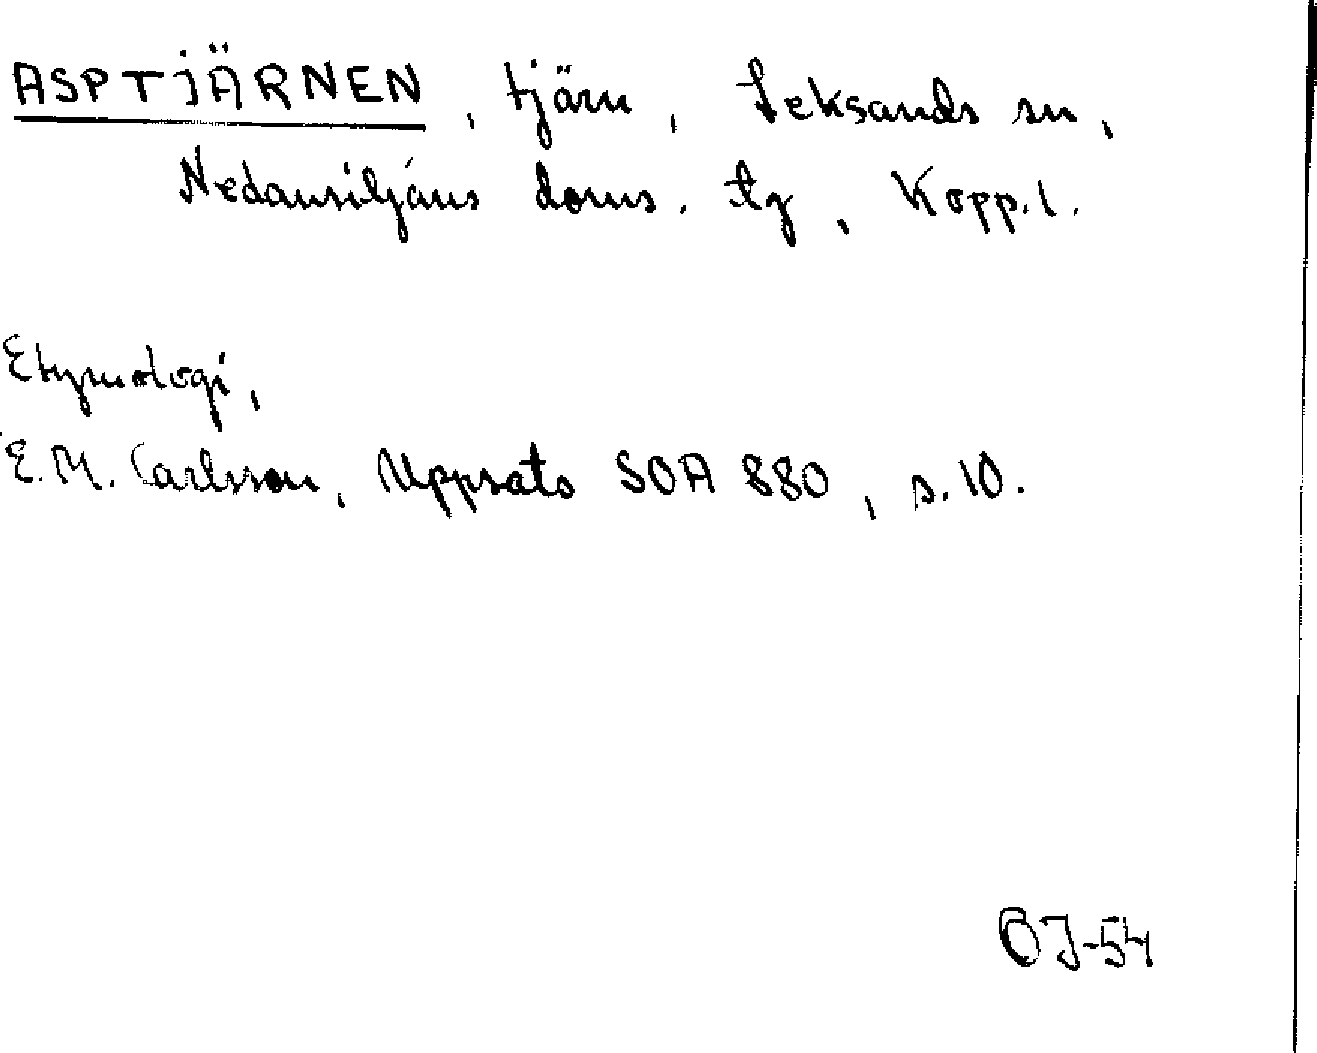 ASPTJÄRNEN, tjärn, Leksands sn,
Nedansiljans doms. tg, Kopp. l.
Etymologi,
E. M. Carlsson, Uppsats SOA 880, s. 10.
OJ-54